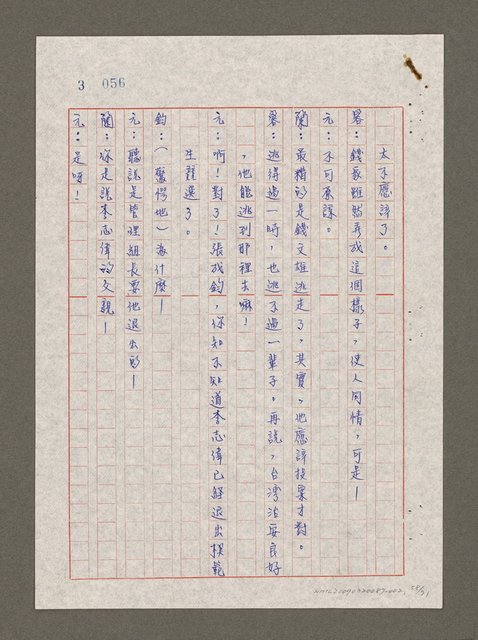 3 056
太不應該了。
畧：錢家雖然弄成這個樣子，使人同情，可是—
元：不可原諒。
蘭：最糟的是錢文雄逃走了，其實，他應該投案才對。
畧：逃得過一時，也逃不過一輩子。再說，台灣治安良好
，他能逃到那裡去嘛！
元：啊！對了！張成鈞，你知不知道李志偉已經退出模範
生競選了。
鈞：（驚愕地）為什麼—
元：聽說是管理組長要他退出的—
蘭：你是說李志偉的父親—
元：是呀！
NMTL20090320087-002